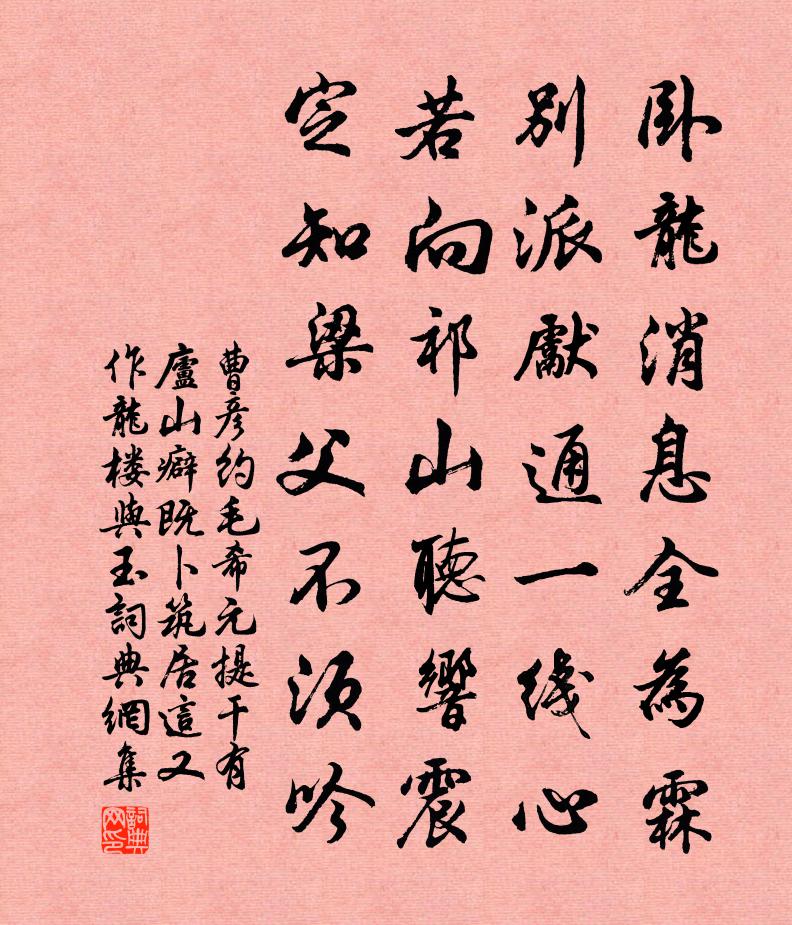 卧龍消息全為霖
別派獻通一线心
若向祁山聽響震
定知梁父不须吟
曹彦约毛希元提干有
廬山癖既卜筑居這又
作龍楼與玉詞典網集
詞典网印